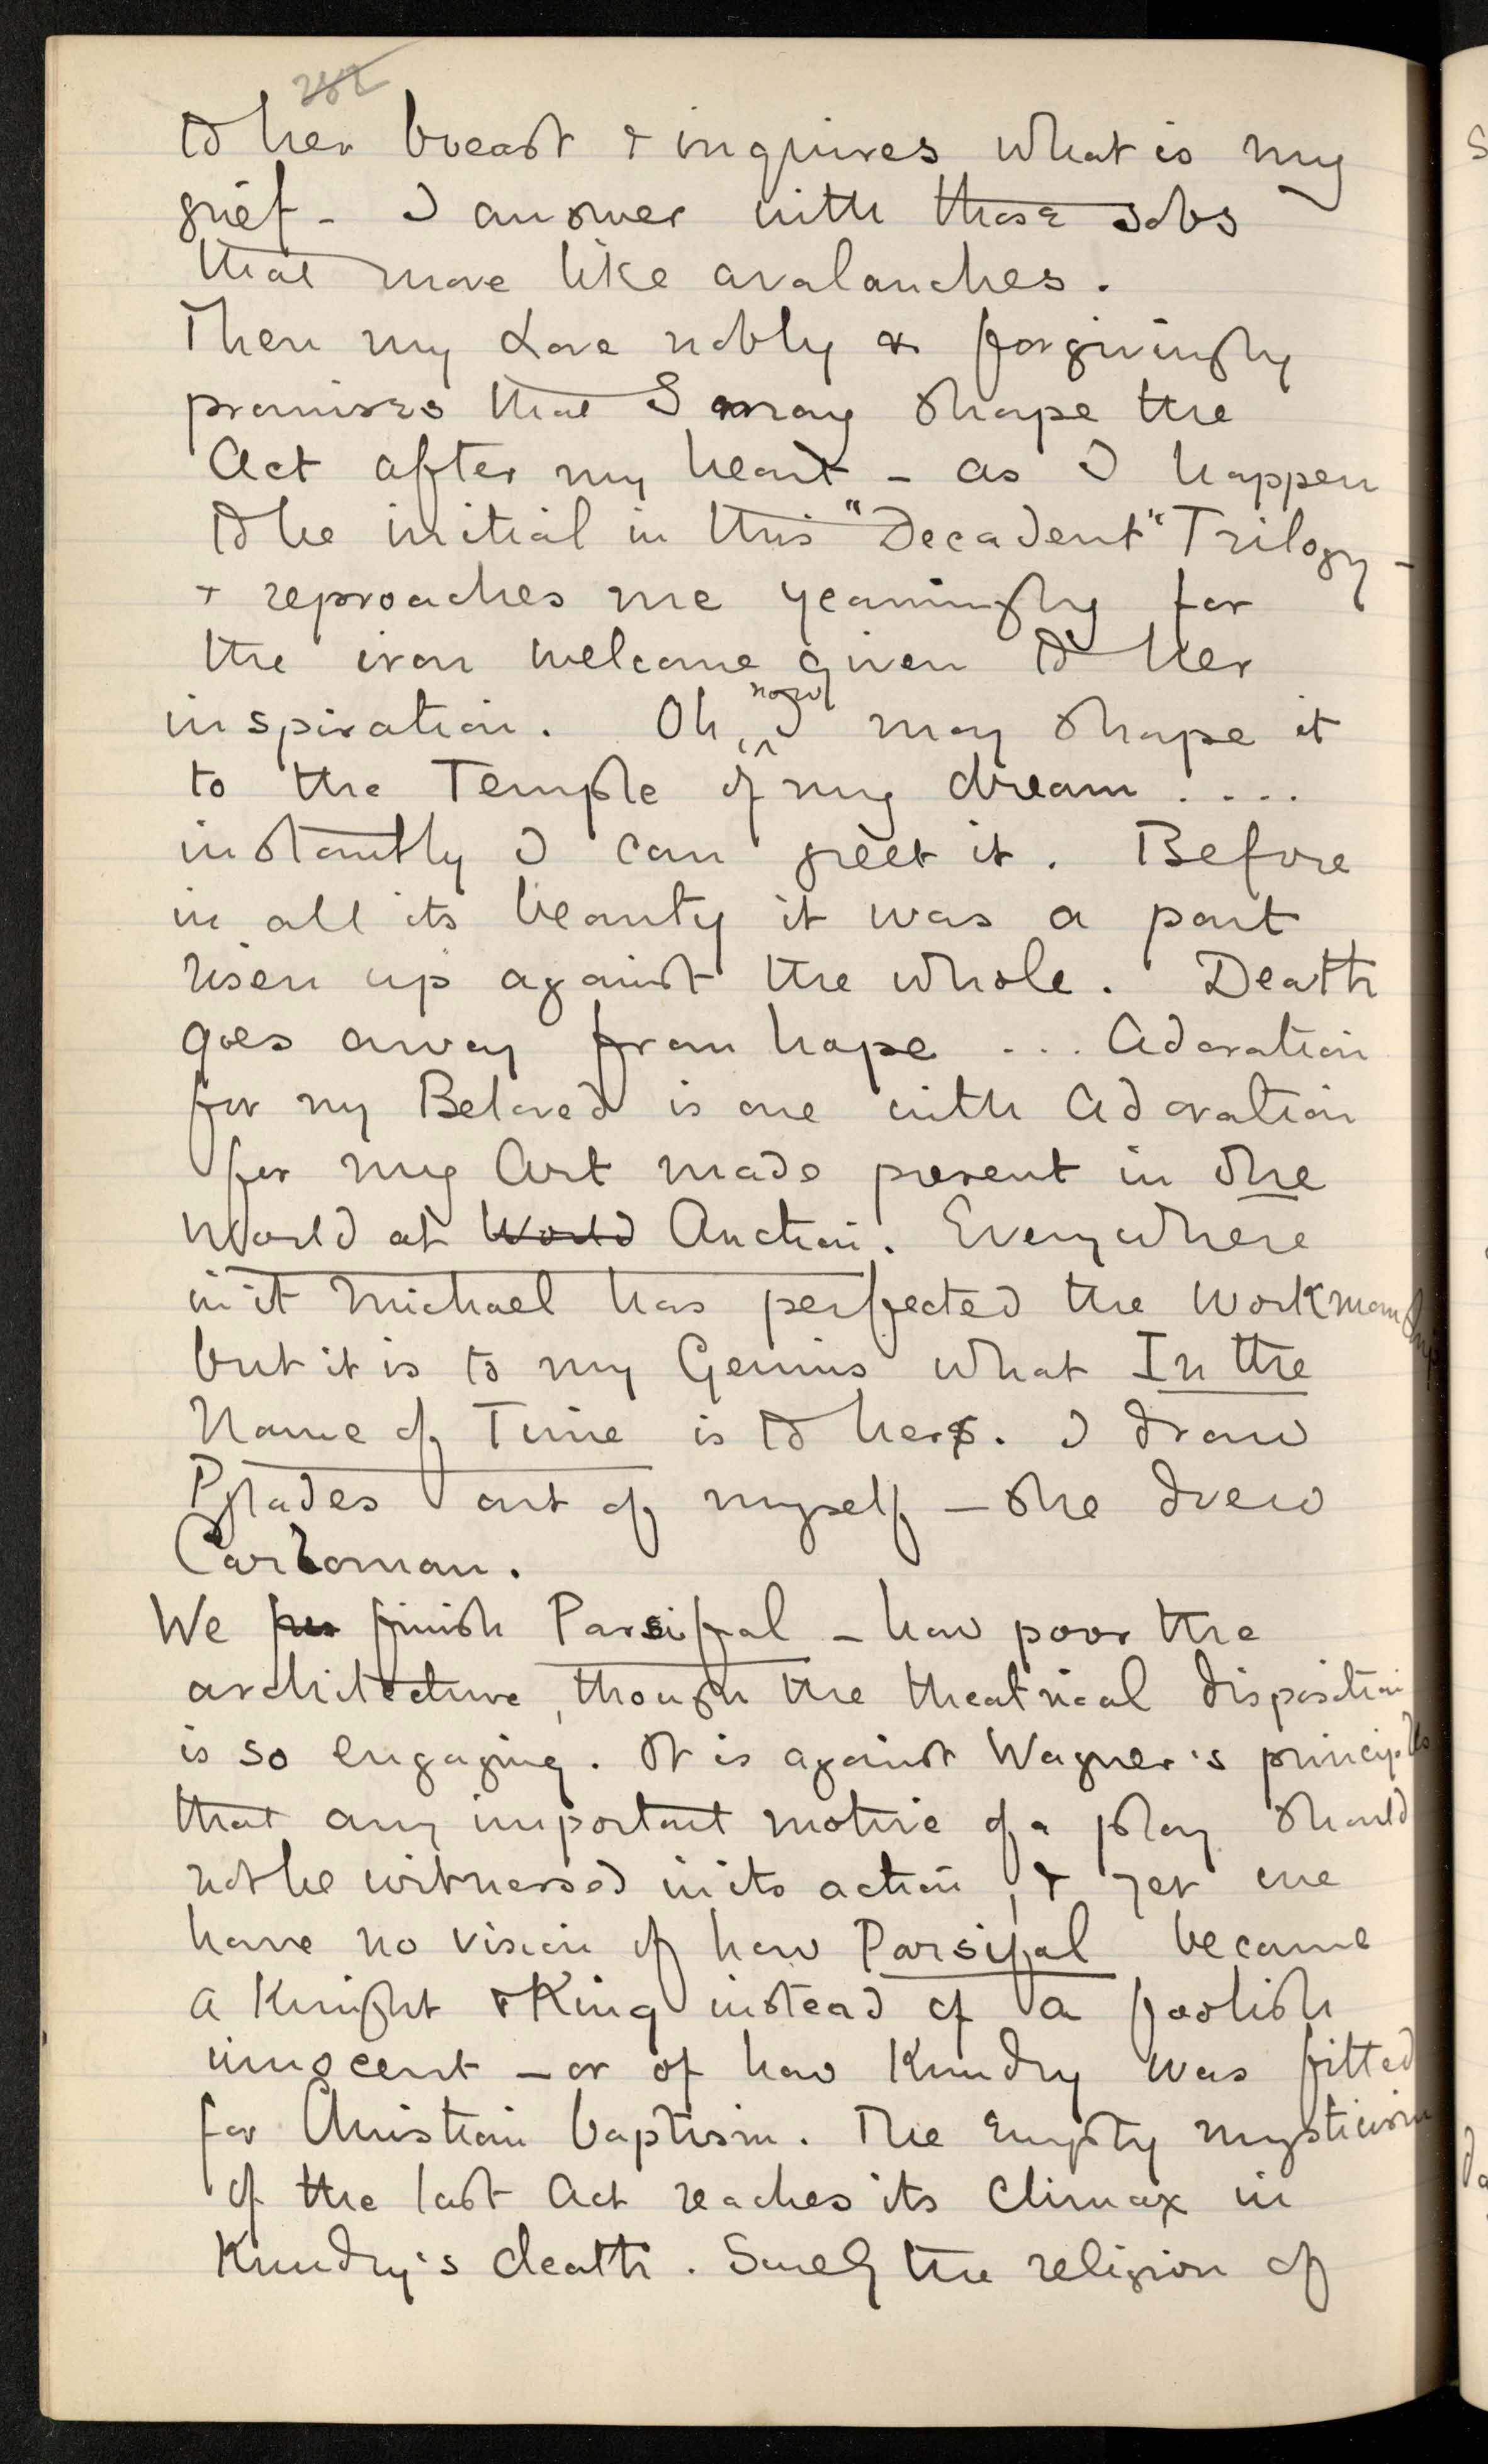 to her breast & inquires what is my
grief - I answer with those sobs
that move like avalanches.
Then my Love nobly & forgivingly
promises that I may shape the
Act after my heart - as I happen
to be initial in this "Decadent" Trilogy -
& reproaches me yearningly for
the iron welcome given to her
inspiration. Oh, now I may shape it
to the Temple of my dream ....
instantly I can greet it. Before
in all its beauty it was a part
risen up against the whole. Death
goes away from hope ... Adoration
for my Beloved is one with Adoration
for my Art made present in the
World at World Auction. Everywhere
in it Michael has perfected the workmanship
but it is to my Genius what In the
Name of Time is to hers. I drew
Pylades out of myself - she drew
Carloman.
We finish Parsifal - how poor the
architecture, though the theatrical disposition
is so engaging. It is against Wagner's principles
that any important motive of a play should
not be witnessed in its action, & yet we
have no vision of how Parsifal became
a Knight & King instead of a foolish
innocent - or of how Kundry was fitted
for Christian baptism. The empty mysticism
of the last Act reaches its climax in
Kundry's death. Surely the religion of